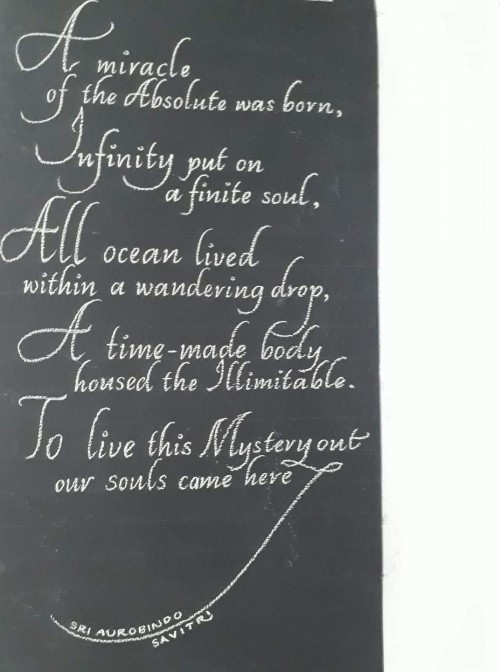 A miracle
of the Absolute was born,
Infinity put on
a finite soul,
All ocean lived
within a wandering drop,
A time-made body
housed the Illimitable.
To live this Mystery out
our souls came here
SRI AUROBINDO
SAVITRI